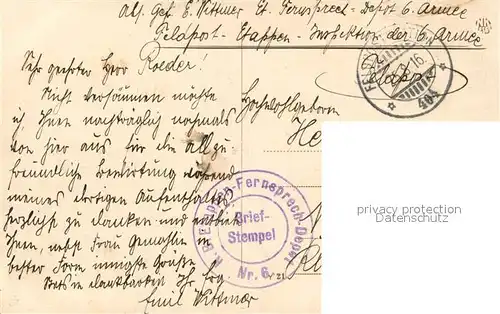 Abs. Gef. E. Wittmer Et. Fernsprech-Depot 6. Armee
Feldpost-Etappen-Inspektion der 6. Armee
Sehr geehrter Herr Roeder!
Nicht versäumen möchte
ich Ihnen nachträglich nochmals
von hier aus für die allzu
freundliche Bewirtung während
meines dortigen Aufenthaltes
herzlichst zu danken und entbiete
Ihnen, nebst Frau Gemahlin in
bester Form innigste Grüße
Stets in Dankbarkeit Ihr Erg.
Emil Wittmer
Hochwohlgeboren
He
16.
404
Fernsprech-Depot
Brief-
Stempel
Nr. 6
privacy protection
Datenschutz